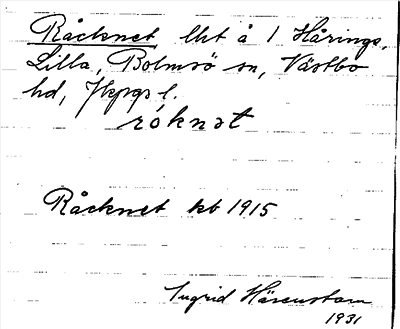 Råcknet lht å 1 Hårings,
Lilla, Bolmsö sn, Västbo
hd, Jkpgs l.
råknət
Råcknet kb 1915
Ingrid Härenstam
1931